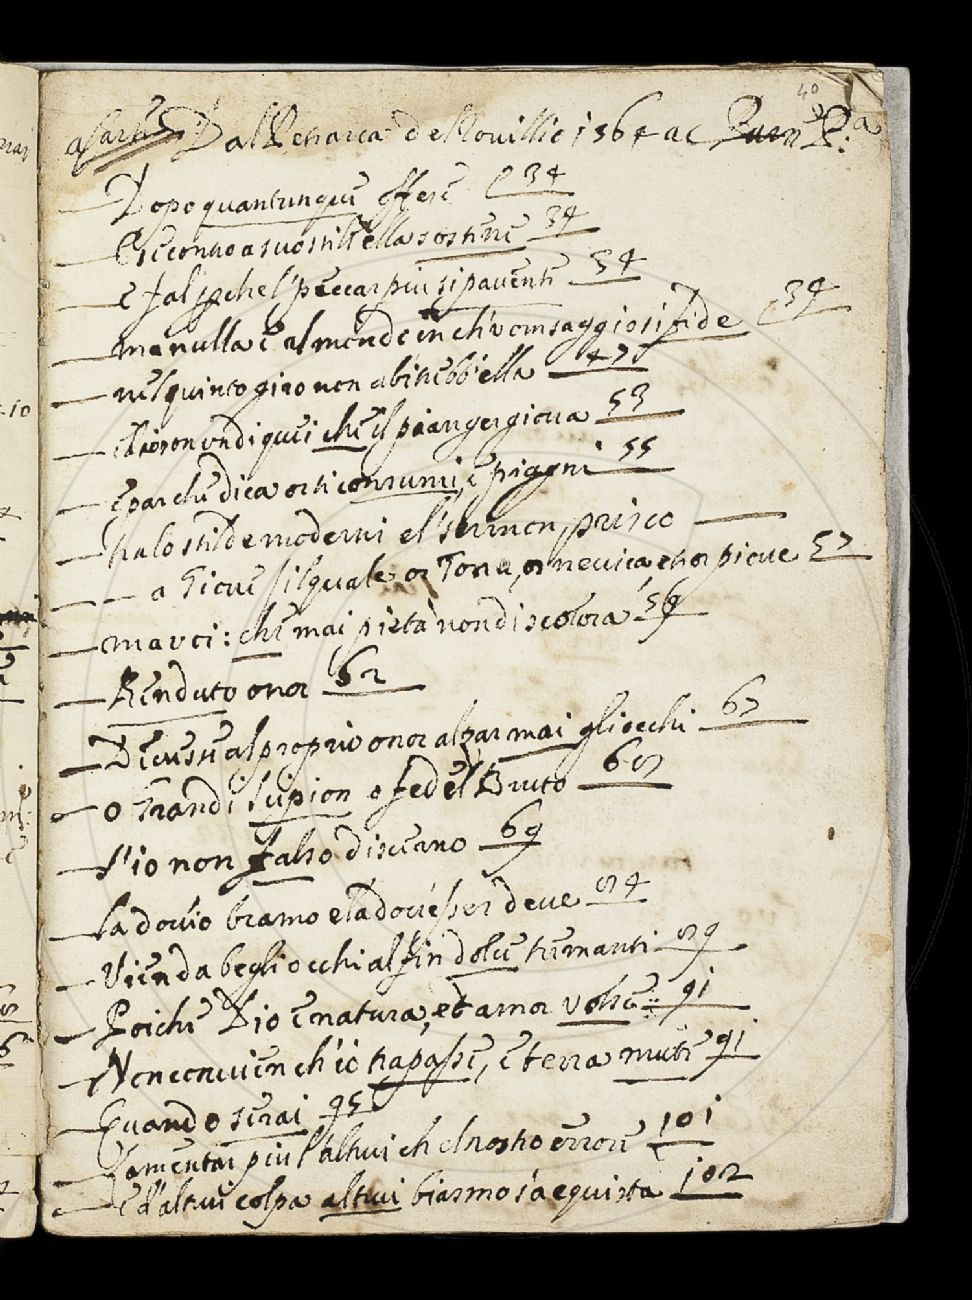 40
a Dal Petrarca de Rouillio 1564 a c P:a
Dopo quantunque offese 34
E seconno a suo stil s'ella sostine 34
e fal perche l'peccar piu si paventi 34
ma nulla è al mondo in ch'vom saggio si fide 34
nel quinto giro non abitrebb'ella 47
chioson undi quei che il pianger giova 53
E par che dica or ti consumi, e piagni 55
tra lo stil de moderni el sermon prisco
a Giove s'il quale or Tona, or nevica et or piove 57
ma vci: che mai pietà non discolora 59
Renduto onor 62
Devesti al proprio onor alzar mai gli occhi 67
o Grandi Scipion o fedel Bruto 69
s'io non falso discerno 69
la dov'io bramo e la dov'esser deve 84
Vien da begli occhi al fin dolce tremanti 89
Poiche Dio e natura, et amor volse: 91
Non convien ch'io trapasse, e terra muti 91
Quando serai 95
Lamentar piu l'altrui ch'el nostro errore 101
E d'altrui colpa altrui biasmo s'acquista 102